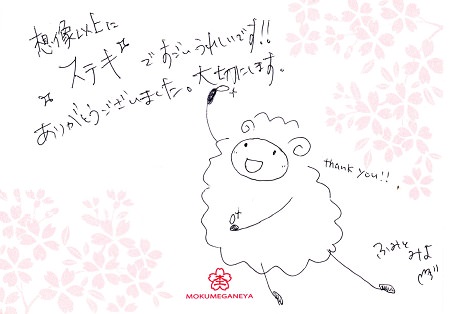 想像以上に
"ステキ" ですごいうれしいです!!
ありがとうございました。大切にします。
thank you!!
ふみと
みよ
MOKUMEGANEYA